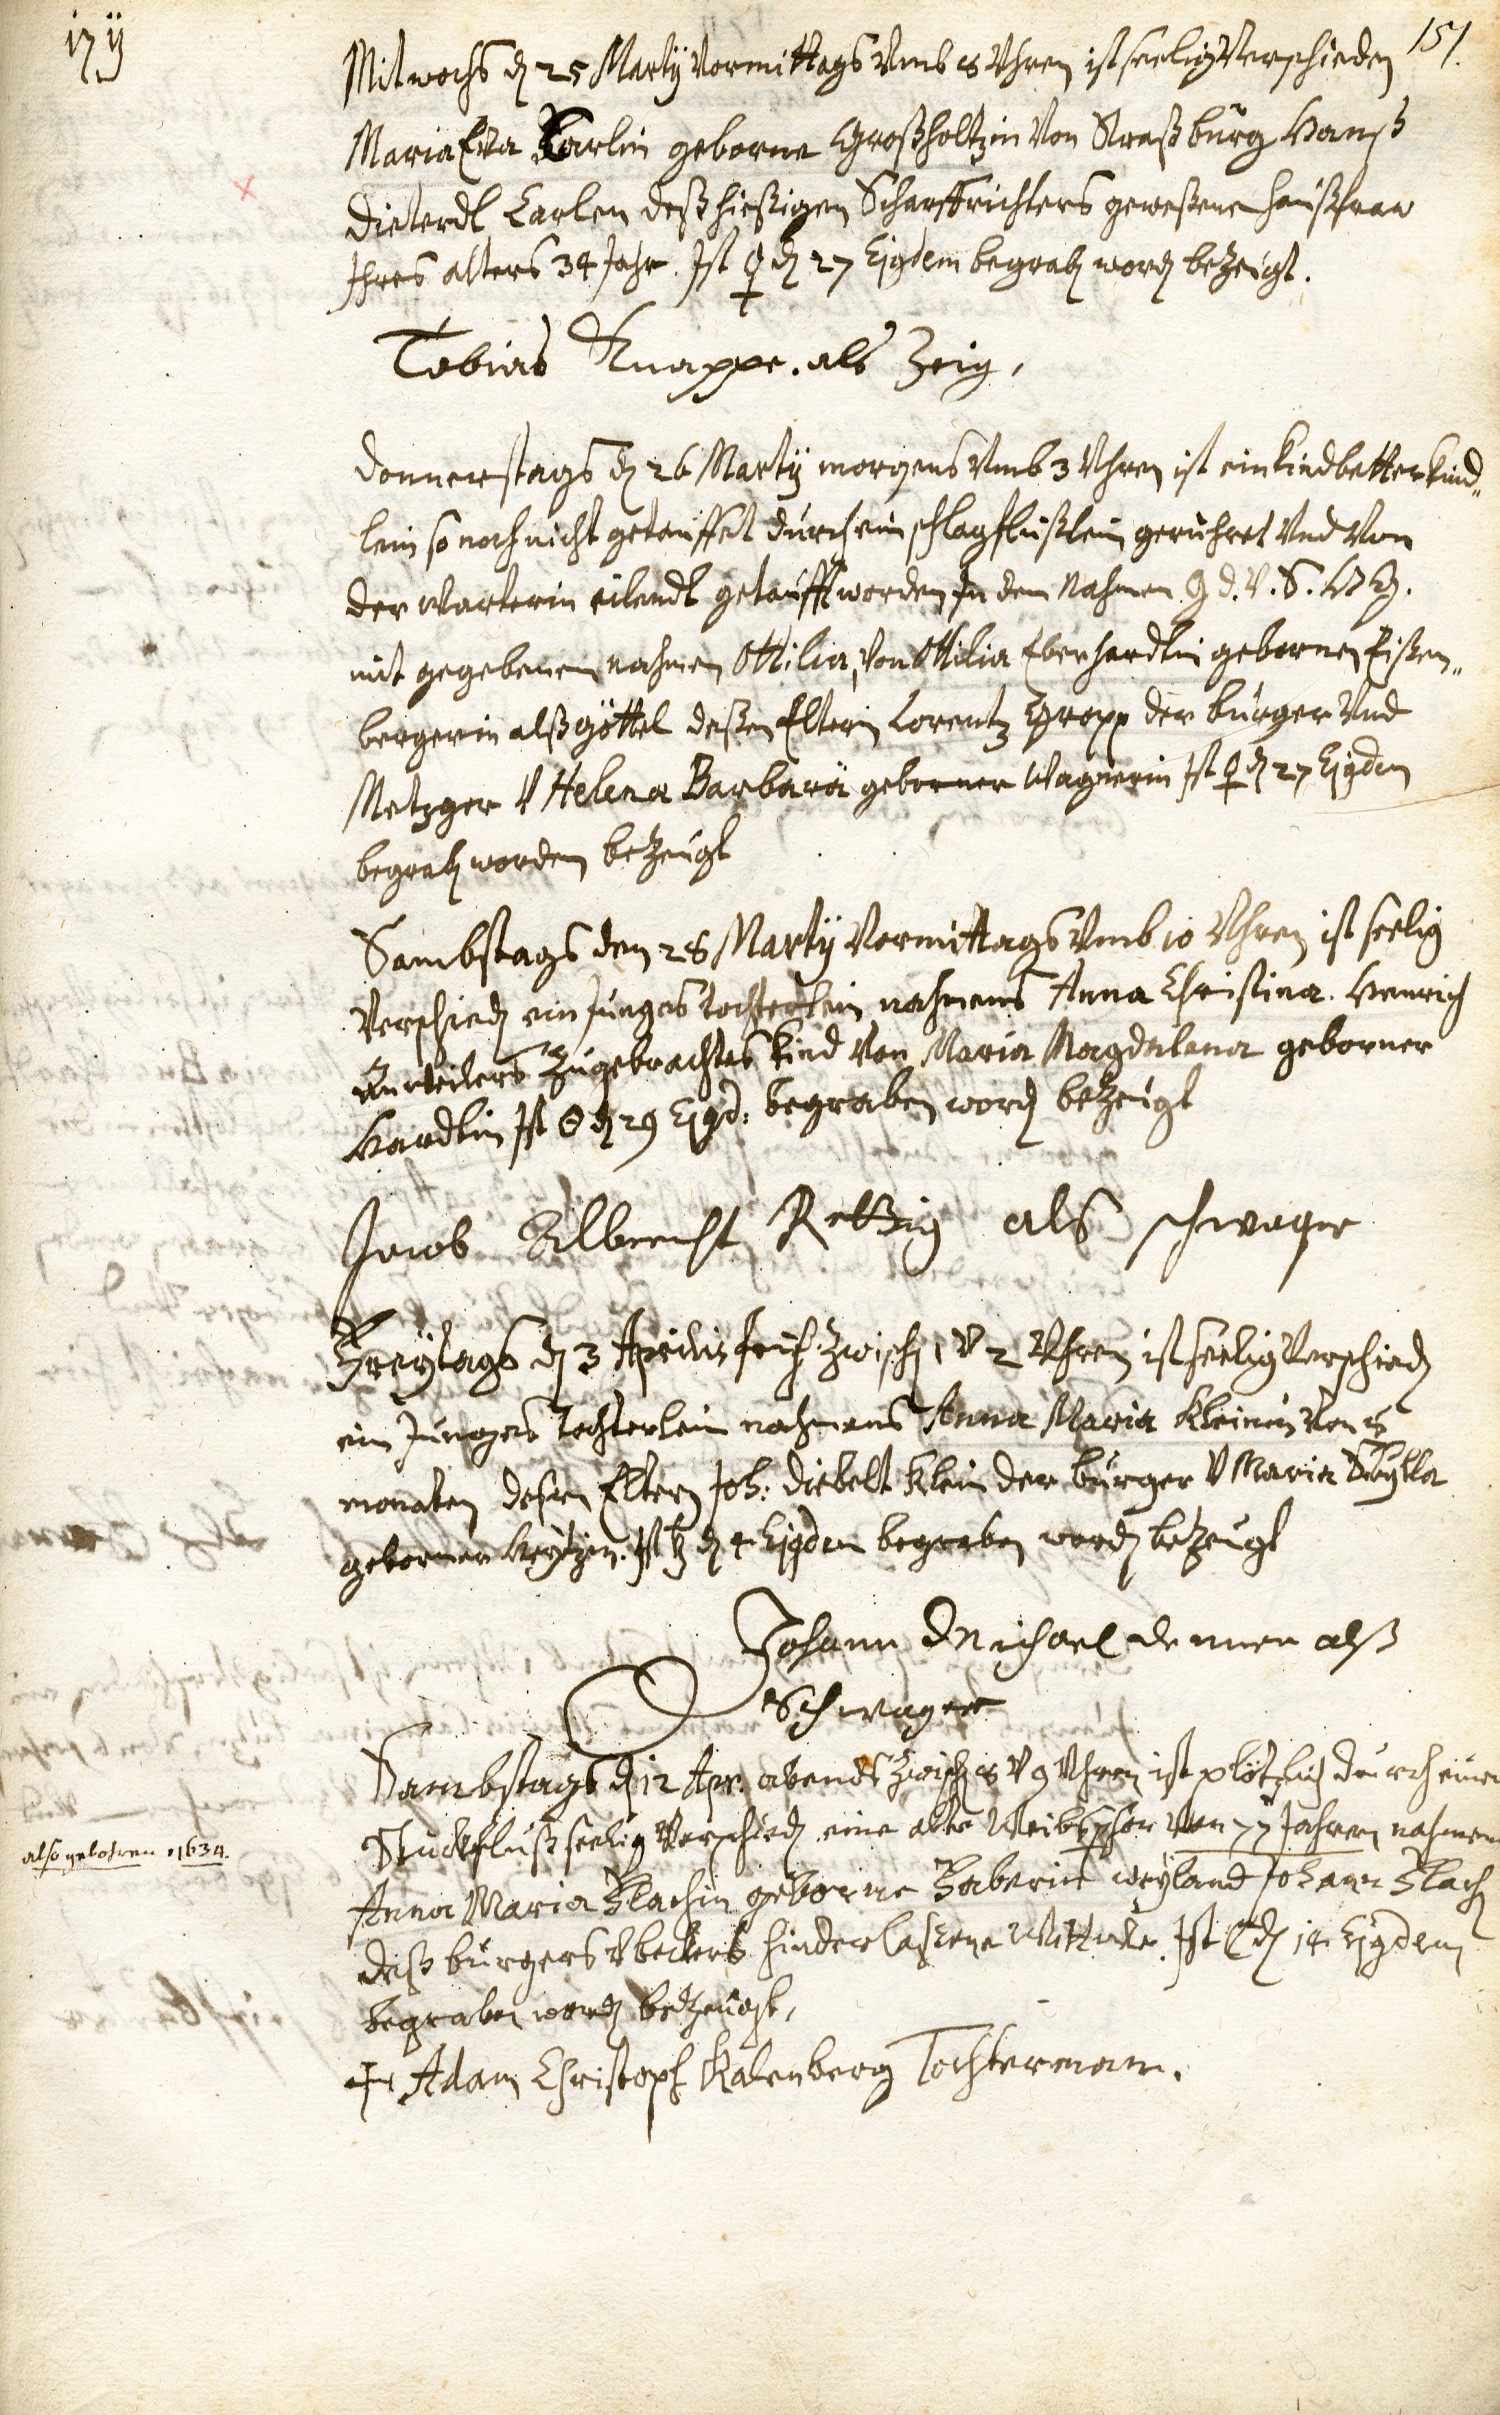 1711
151.
Mitwochs d 25 Martÿ Vormittags Vmb 8 Vhren ist seelig Verschieden
Maria Eva Carlin geborne Großholtzin Von Straßburg Hanß
Dieterdl Carlen deß hießigen Scharffrichters geweßene haußfraw
Ihres alters 34 Jahr. Ist ♀ d 27 Ejgdem begrab word bezeugt.
Tobias Knappe. als Zeig,
Donnerstags d 26 Martÿ morgens Vmb 3 Vhren ist ein kindbetterkind„
lein so noch nicht getauffet durch ein schlagflüßlein gerühret Vnd Von
der Warterin eilendt getaufft worden In dem Nahmen G d. V. S. H G.
mit gegebenem nahmen Ottilia, Von Ottilia Eberhardtin geborner Eißen„
bergerin alß göttel deßen Eltern Lorentz Gropp der burger Vnd
Metzger V Helena Barbara geborner Wagnerin Ist ♀ d 27 Ejgdem
begrab worden bezeugt
Sambstags den 28 Martÿ Vormittags Vmb 10 Vhren ist seelig
Verschied ein Junges tochterlein nahmens Anna Christina. Henrich
Zugebrachtes kind Von Maria Magdalena geborner
Hardtin Ist ☉ d 29 Ejgd: begraben word bezeugt
Jacob Albrecht Rettig als schwager
Freÿtags d 3 Aprilis früh zwisch 1 V 2 Vhren ist seelig Verschied
ein Junges tochterlein nahmens Anna Maria Kleinin Von 8
monaten deßen Eltern Joh: Diebelt Klein der burger V Maria Sibÿlla
geborner . Ist ♄ d 4 Ejgdem begraben word bezeugt
Johann Michael denner alß
Schwager
Sambstags d 12 Apr. abends zwisch 8 V 9 Vhren ist plötzlich durch einen
Stückfluß seelig Verschied eine alte Weibsperson Von 77 Jahren nahmens
also geboren 1634.
Anna Maria Flachin geborne Faberin weÿland Johann Flach
deß burgers V beckers hinderlaßene Wittwe. Ist ☾ d 14 Ejgdem
begraben word bezeugt,
+ Adam Christoph Kalenberg Tochterman.